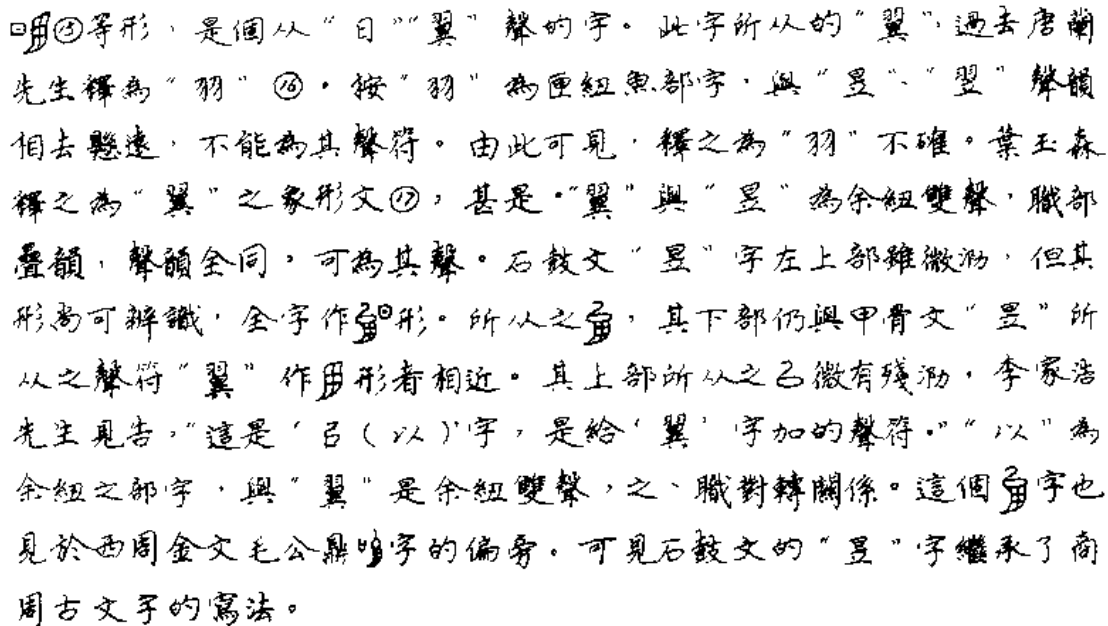 ⑮等形，是個从“日”“翼”聲的字。此字所从的“翼”，過去唐蘭
先生釋為“羽”⑯。按“羽”為匣紐魚部字，與“昱”、“翌”聲韻
相去懸遠，不能為其聲符。由此可見，釋之為“羽”不確。葉玉森
釋之為“翼”之象形文⑰，甚是。“翼”與“昱”為余紐雙聲，職部
疊韻，聲韻全同，可為其聲。石鼓文“昱”字左上部雖微泐，但其
形尚可辨識，全字作形。所从之，其下部仍與甲骨文“昱”所
从之聲符“翼”作形者相近。其上部所从之㠯微有殘泐，李家浩
先生見告，“這是‘㠯（以）’字，是給‘翼’字加的聲符。”“以”為
余紐之部字，與“翼”是余紐雙聲，之、職對轉關係。這個字也
見於西周金文毛公鼎字的偏旁。可見石鼓文的“昱”字繼承了商
周古文字的寫法。